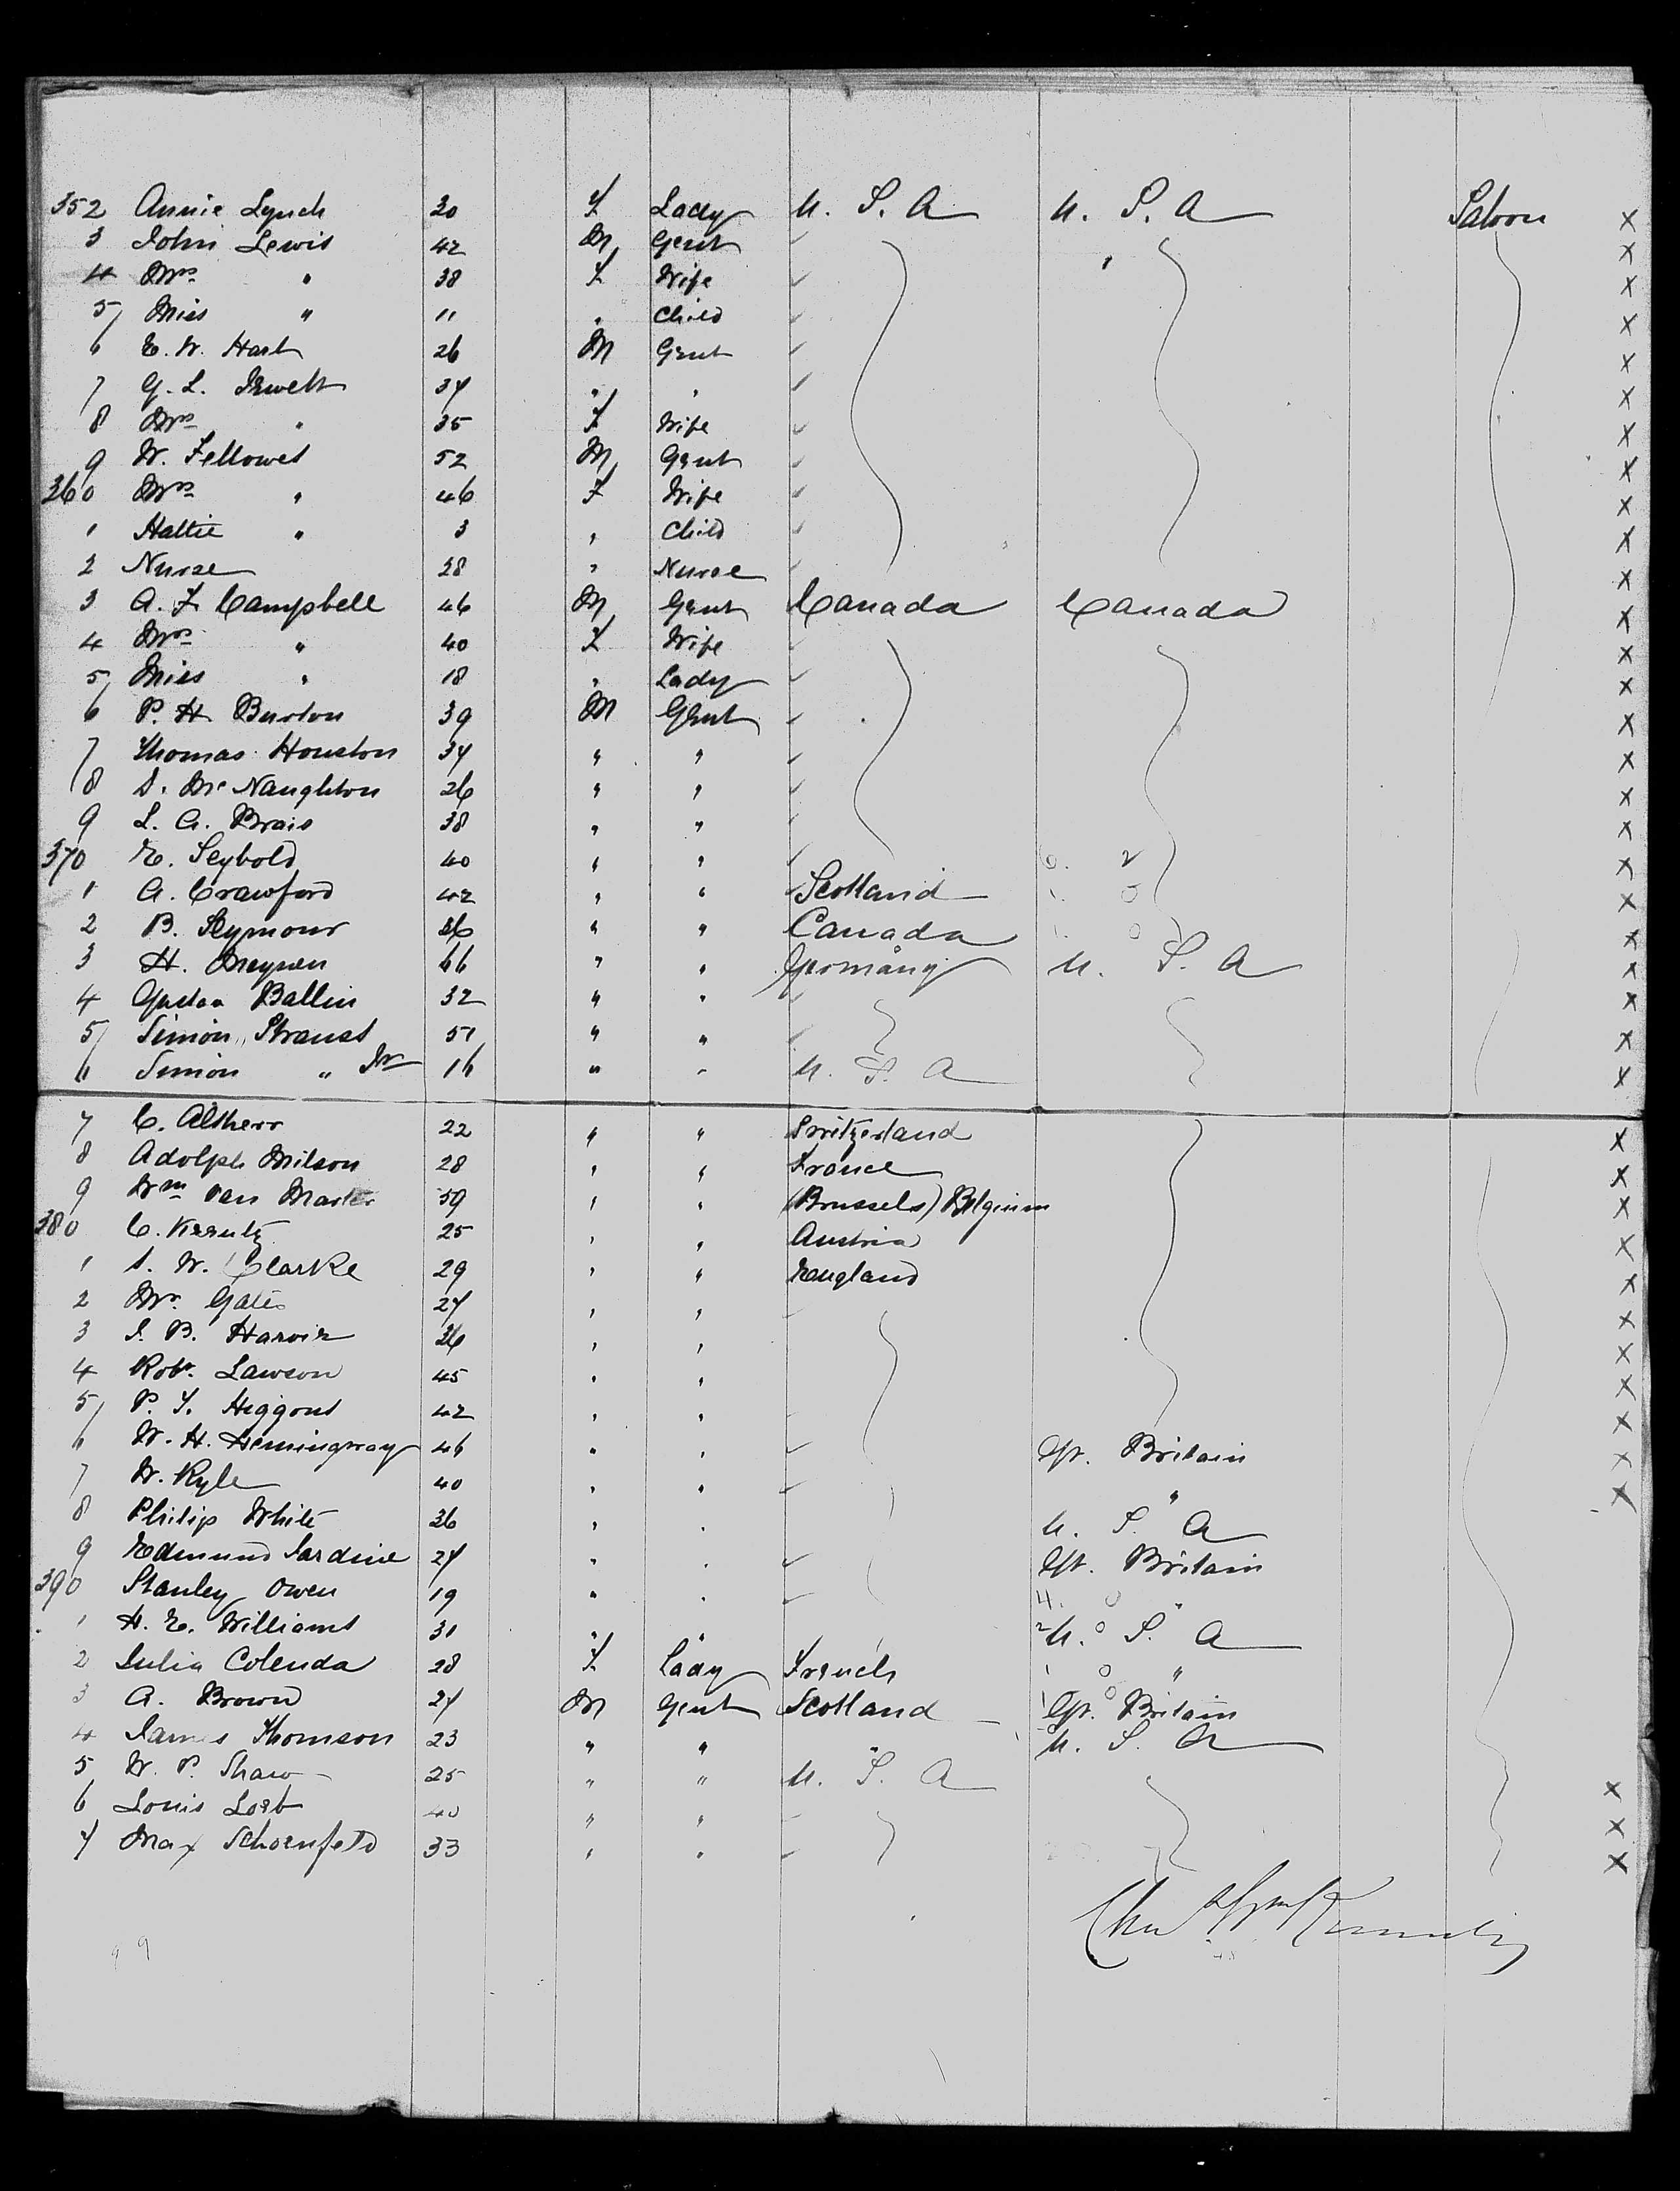 352 Annie Lynch 30 F Lady U. S. A U. S. A Saloon X
3 John Lewis 42 M Gent X
4 Mrs " 38 F Wife " X
5 Miss " 11 " Child X
6 E. W. Hart 26 M Gent X
7 G. L. 34 " " X
8 Mrs " 35 F Wife X
9 W. Fellowes 52 M Gent X
360 Mrs " 46 F Wife X
1 Hattie " 3 " Child X
2 Nurse 28 " Nurse X
3 A. F. Campbell 46 M Gent Canada Canada X
4 Mrs " 40 F Wife X
5 Miss " 18 " Lady X
6 P. H. Burton 39 M Gent X
7 Thomas Houston 34 " " X
8 D. McNaughton 26 " " X
9 L. A. Brais 38 " " X
370 E. Seybold 40 " " X
1 A. Crawford 42 " " Scotland X
2 B. Seymour 36 " " Canada X
3 H. Meynen 66 " " Germany U. S. A X
4 Gustav Ballin 32 " " X
5 Simon Strauss 51 " " X
6 Simon " Jr 16 " " U. S. A X
7 C. Altherr 22 " " Switzerland X
8 Adolph Milson 28 " " France X
9 Wm van 59 " " (Brussels) Belgium X
380 C. 25 " " Austria X
1 S. W. Clarke 29 " " England X
2 Mr. Gates 24 " " X
3 J. B. 36 " " X
4 Robt. Lawson 45 " " X
5 P. Y. Higgons 42 " " X
6 W. H. Hemingway 46 " " Gt. Britain X
7 W. Kyle 40 " " " X
8 Philip White 36 " " U. S. A
9 Edmund Jardine 24 " " Gt. Britain
390 Stanley Owen 19 " " "
1 H. E. Williams 31 " " U. S. A
2 Julia Colenda 28 F Lady French "
3 A. Brown 24 M Gent Scotland Gt. Britain
4 James Thomson 23 " " " U. S. A
5 W. P. Shaw 25 " " U. S. A X
6 Louis Loeb 40 " " X
7 Max Schoenfeld 33 " " X